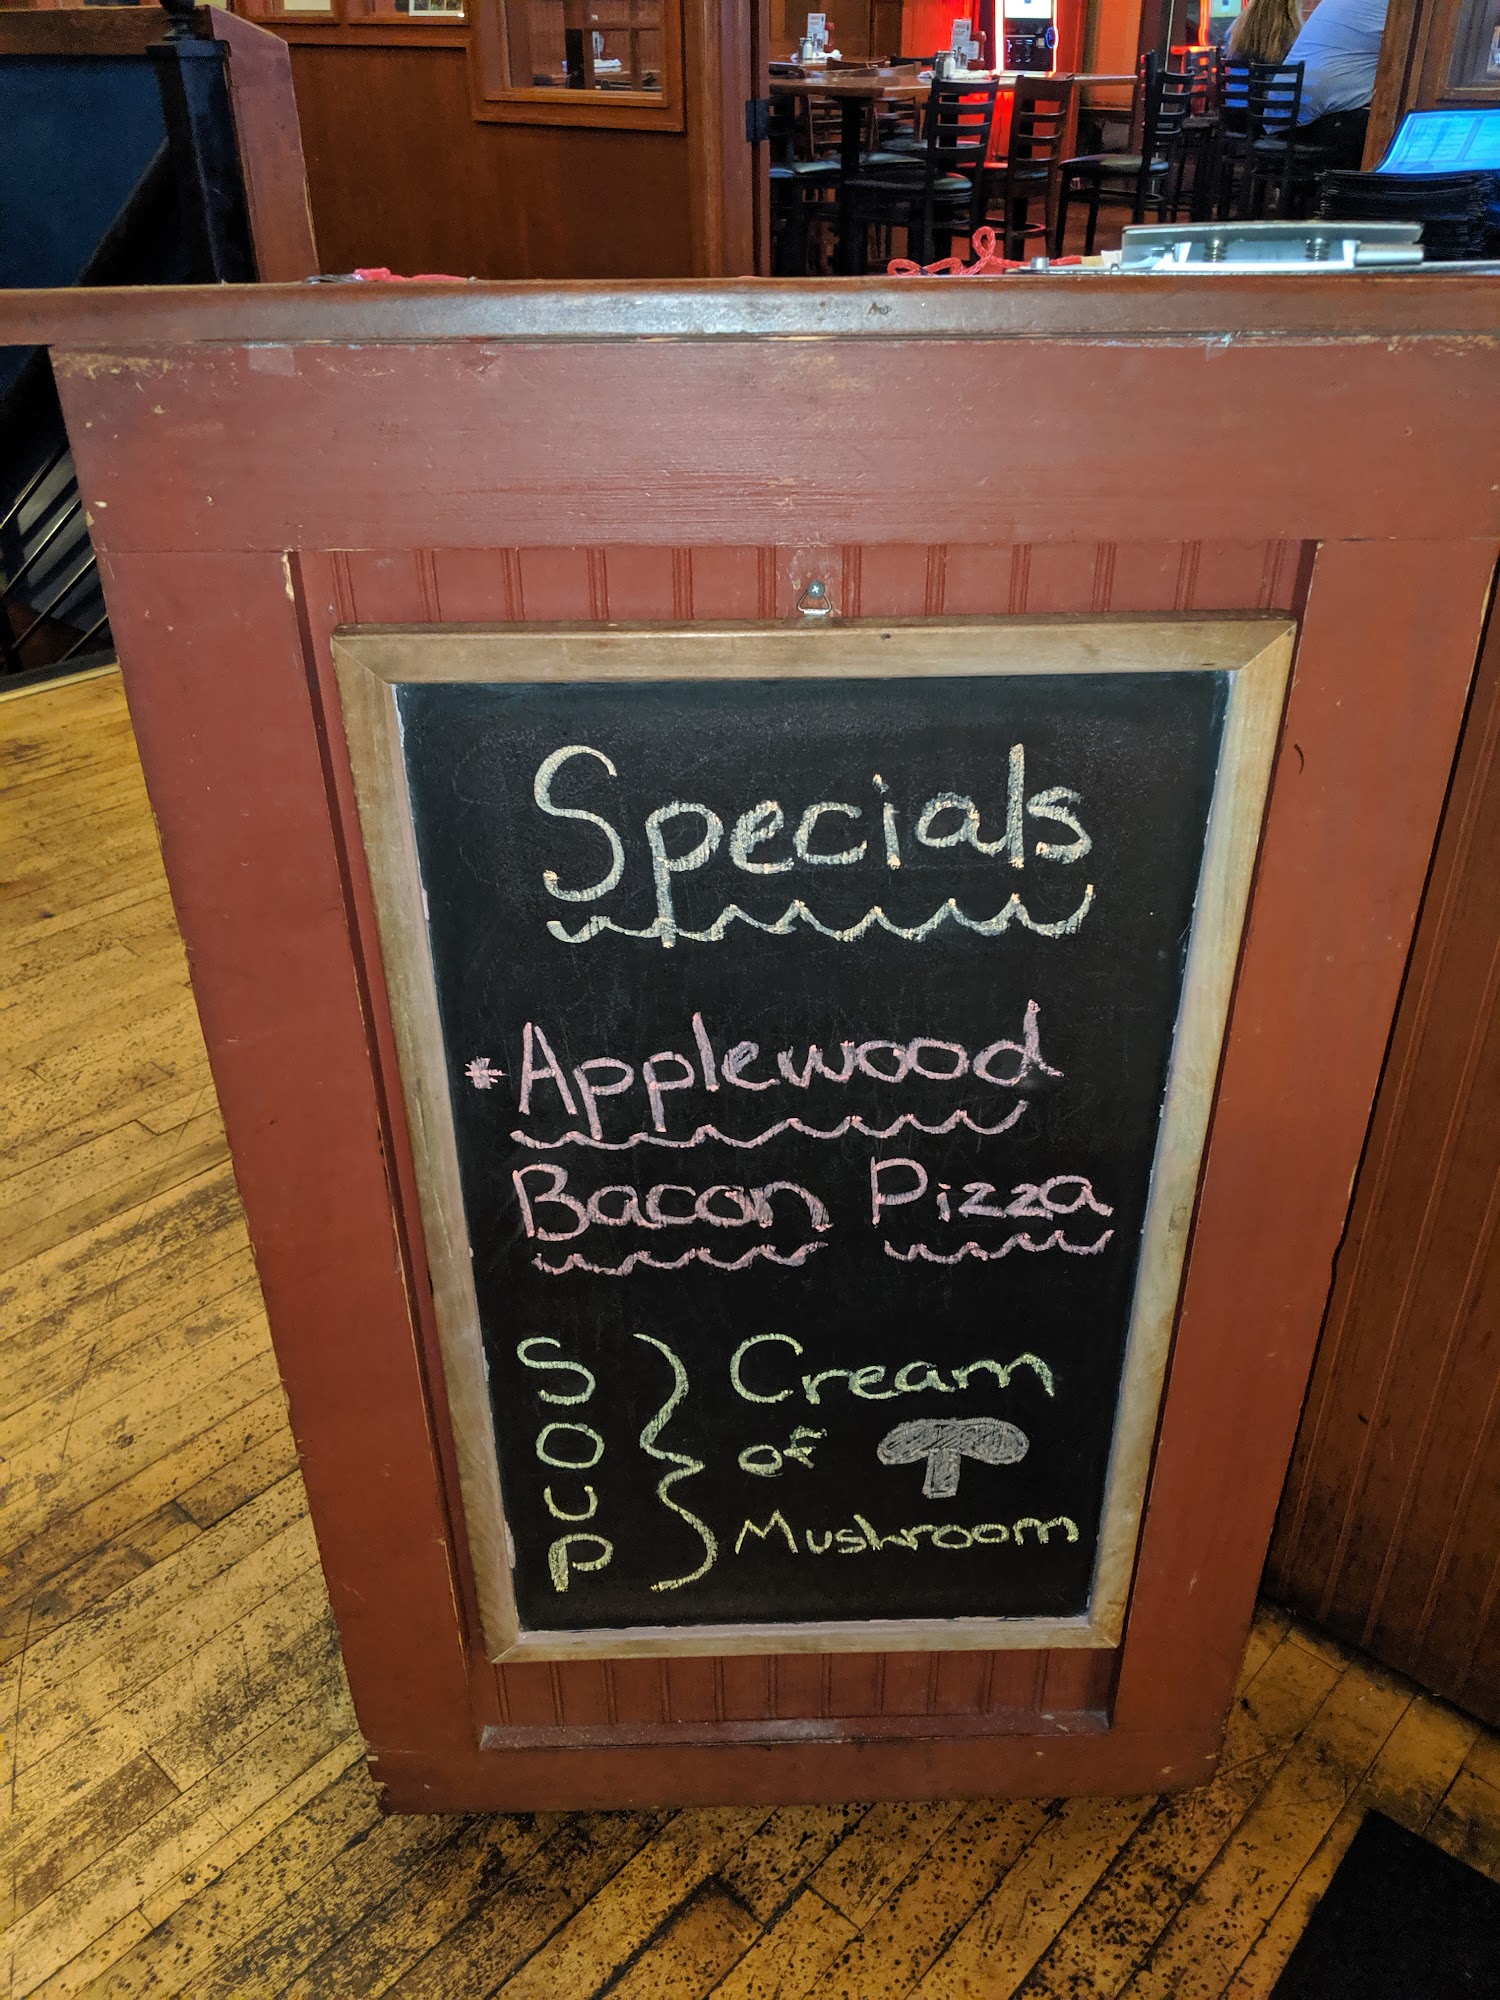 Specials
*Applewood
Bacon Pizza
SOUP } Cream
of
Mushroom